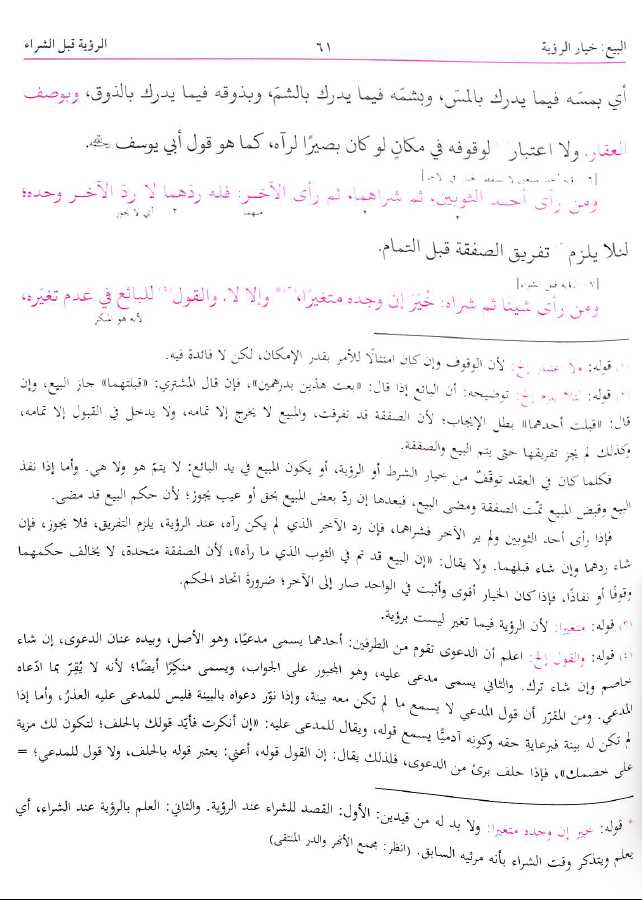 البيع: خيار الرؤية ٦١ الرؤية قبل الشراء
أي بمسّه فيما يدرك بالمسّ، وبشمّه فيما يدرك بالشمّ، وبذوقه فيما يدرك بالذوق، وبوصف
العقار. ولا اعتبار لوقوفه في مكانٍ لو كان بصيرًا لرآه، كما هو قول أبي يوسف
ومن رأى أحد الثوبين، ثم شراهما، ثم رأى الآخر: فله ردّهما لا ردّ الآخر وحده؛
منهما أي لا يجوز
لئلا يلزم تفريق الصفقة قبل التمام.
ومن رأى شيئا ثم شراه: خُيّر إن وجده متغيرًا، وإلا لا. والقول للبائع في عدم تغيّره،
لأنه هو منكر
قوله: ولا اعتبار إلخ: لأن الوقوف وإن كان امتثالًا للأمر بقدر الإمكان، لكن لا فائدة فيه.
قوله: لئلا يلزم إلخ: توضيحه: أن البائع إذا قال: «بعت هذين بدرهمين»، فإن قال المشتري: «قبلتهما» جاز البيع، وإن
قال: «قبلت أحدهما» بطل الإيجاب؛ لأن الصفقة قد تفرقت، والمبيع لا يخرج إلا تمامه، ولا يدخل في القبول إلا تمامه،
وكذلك لم يجز تفريقها حتى يتم البيع والصفقة.
فكلما كان في العقد توقّفٌ من خيار الشرط أو الرؤية، أو يكون المبيع في يد البائع: لا يتمّ هو ولا هي. وأما إذا نفذ
البيع وقبض المبيع تمّت الصفقة ومضى البيع، فبعدها إن ردّ بعض المبيع بحق أو عيب يجوز؛ لأن حكم البيع قد مضى.
فإذا رأى أحد الثوبين ولم ير الآخر فشراهما، فإن رد الآخر الذي لم يكن رآه، عند الرؤية، يلزم التفريق، فلا يجوز، فإن
شاء ردهما وإن شاء قبلهما. ولا يقال: «إن البيع قد تم في الثوب الذي ما رآه»، لأن الصفقة متحدة، لا يخالف حكمهما
وقوفًا أو نفاذًا، فإذا كان الخيار أقوى وأثبت في الواحد صار إلى الآخر؛ ضرورةَ اتحاد الحكم.
(٣) قوله: متغيرا: لأن الرؤية فيما تغير ليست برؤية.
(٤) قوله: والقول إلخ: اعلم أن الدعوى تقوم من الطرفين: أحدهما يسمى مدعيًا، وهو الأصل، وبيده عنان الدعوى، إن شاء
خاصم وإن شاء ترك. والثاني يسمى مدعى عليه، وهو المجبور على الجواب، ويسمى منكِرًا أيضًا؛ لأنه لا يُقِرّ بما ادّعاه
المدعي. ومن المقرّر أن قول المدعي لا يسمع ما لم تكن معه بينة، وإذا نوّر دعواه بالبينة فليس للمدعى عليه العذرُ، وأما إذا
لم تكن له بينة فبرعاية حقه وكونه آدميًّا يسمع قوله، ويقال للمدعى عليه: «إن أنكرت فأيّد قولك بالحلف؛ لتكون لك مزية
على خصمك»، فإذا حلف برئ من الدعوى، فلذلك يقال: إن القول قوله، أعني: يعتبر قوله بالحلف، ولا قول للمدعي؛ =
* قوله: خير إن وجده متغيرا: ولا بد له من قيدين: الأول: القصد للشراء عند الرؤية. والثاني: العلم بالرؤية عند الشراء، أي
يعلم ويتذكر وقت الشراء بأنه مرئيه السابق. (انظر: مجمع الأنهر والدر المنتقى)